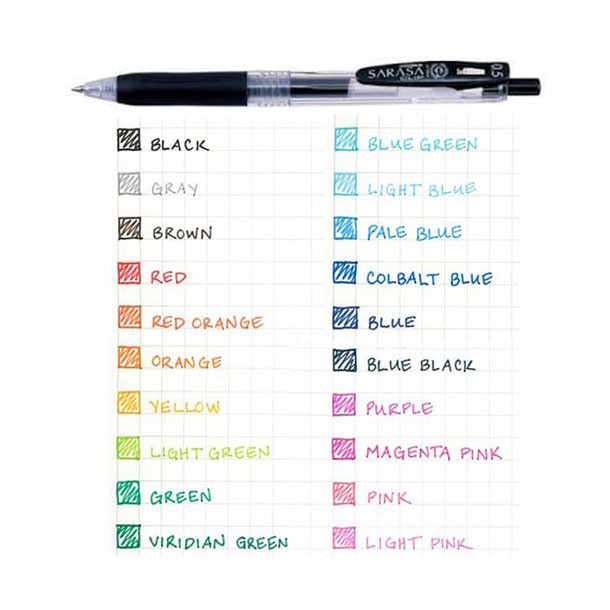 SARASA
0.5
BLACK
GRAY
BROWN
RED
RED ORANGE
ORANGE
YELLOW
LIGHT GREEN
GREEN
VIRIDIAN GREEN
BLUE GREEN
LIGHT BLUE
PALE BLUE
COLBALT BLUE
BLUE
BLUE BLACK
PURPLE
MAGENTA PINK
PINK
LIGHT PINK